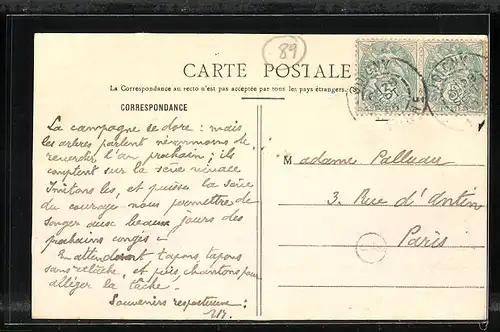 89
CARTE POSTALE
La Correspondance au recto n'est pas acceptée par tous les pays étrangers.
CORRESPONDANCE
La campagne se dore : mais
les arbres parlent néanmoins de
reverdir l'an prochain ; ils
comptent sur la sève nouvelle
Imitons les, et puisse la sève
du courage nous permettre de
songer aux beaux jours des
prochains congés –
En attendant tapons, tapons
sans relâche, et puis, chantons pour
alléger la tâche.
Souvenirs respectueux :
Madame Palluau
3, Rue d'Antin
Paris